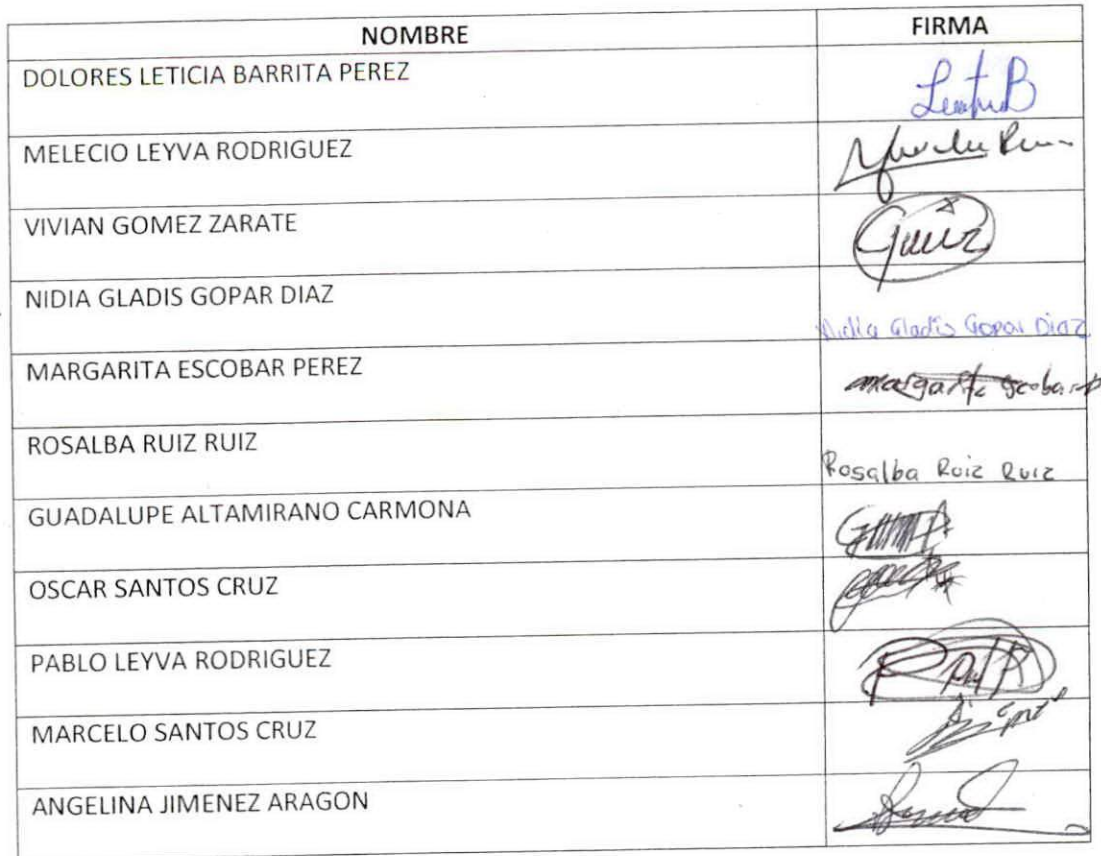 NOMBRE FIRMA
DOLORES LETICIA BARRITA PEREZ
MELECIO LEYVA RODRIGUEZ
VIVIAN GOMEZ ZARATE
NIDIA GLADIS GOPAR DIAZ
Nidia Gladis Gopar Diaz
MARGARITA ESCOBAR PEREZ
margarita escobar P
ROSALBA RUIZ RUIZ
Rosalba Ruiz Ruiz
GUADALUPE ALTAMIRANO CARMONA
OSCAR SANTOS CRUZ
PABLO LEYVA RODRIGUEZ
MARCELO SANTOS CRUZ
ANGELINA JIMENEZ ARAGON